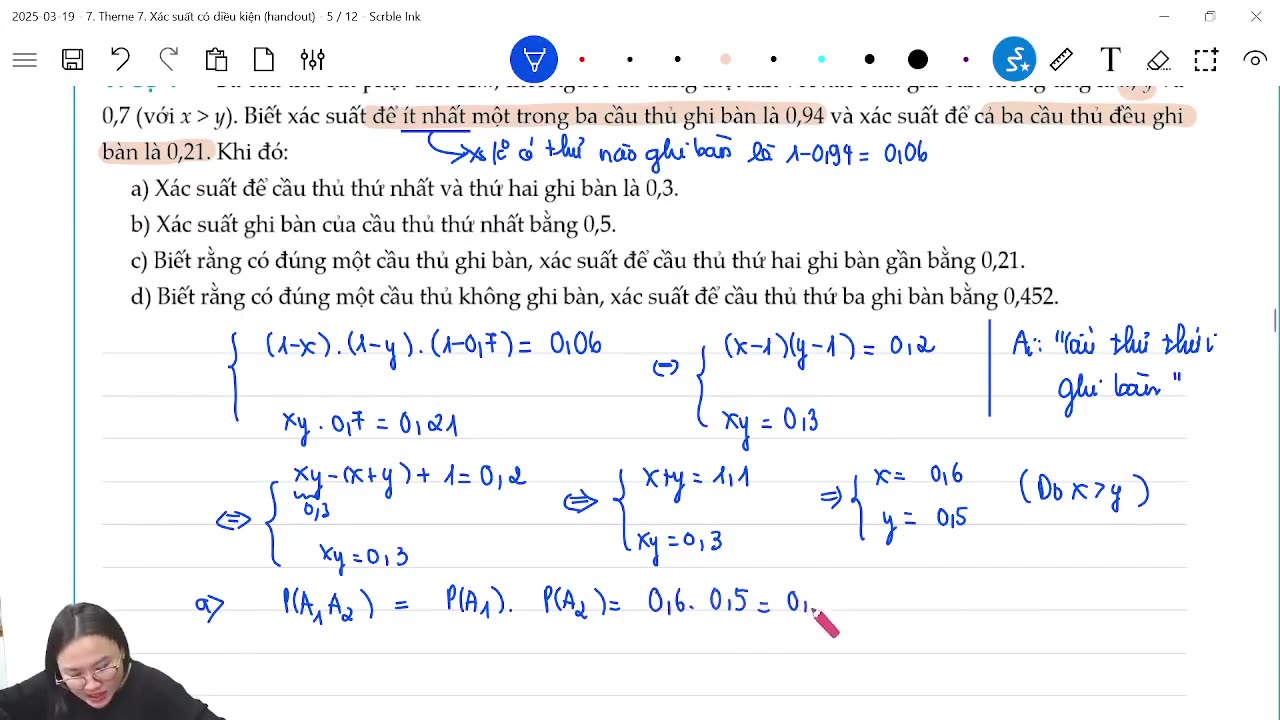 2025-03-19 - 7. Theme 7. Xác suất có điều kiện (handout) - 5 / 12 - Scrble Ink
T
0,7 (với x > y). Biết xác suất để ít nhất một trong ba cầu thủ ghi bàn là 0,94 và xác suất để cả ba cầu thủ đều ghi
bàn là 0,21. Khi đó:
thủ nào ghi bàn là 1-0,94 = 0,06
a) Xác suất để cầu thủ thứ nhất và thứ hai ghi bàn là 0,3.
b) Xác suất ghi bàn của cầu thủ thứ nhất bằng 0,5.
c) Biết rằng có đúng một cầu thủ ghi bàn, xác suất để cầu thủ thứ hai ghi bàn gần bằng 0,21.
d) Biết rằng có đúng một cầu thủ không ghi bàn, xác suất để cầu thủ thứ ba ghi bàn bằng 0,452.
(1-x).(1-y).(1-0,7) = 0,06
xy . 0,7 = 0,21
(x-1)(y-1) = 0,2
xy = 0,3
Ai: "Cầu thủ thứ i
ghi bàn"
⇔ xy-(x+y)+1=0,2
0,3
xy=0,3
⇔ x+y = 1,1
xy=0,3
⇒ x= 0,6
y= 0,5
(Do x>y)
a) P(A₁A₂) = P(A₁). P(A₂)= 0,6. 0,5 = 0,